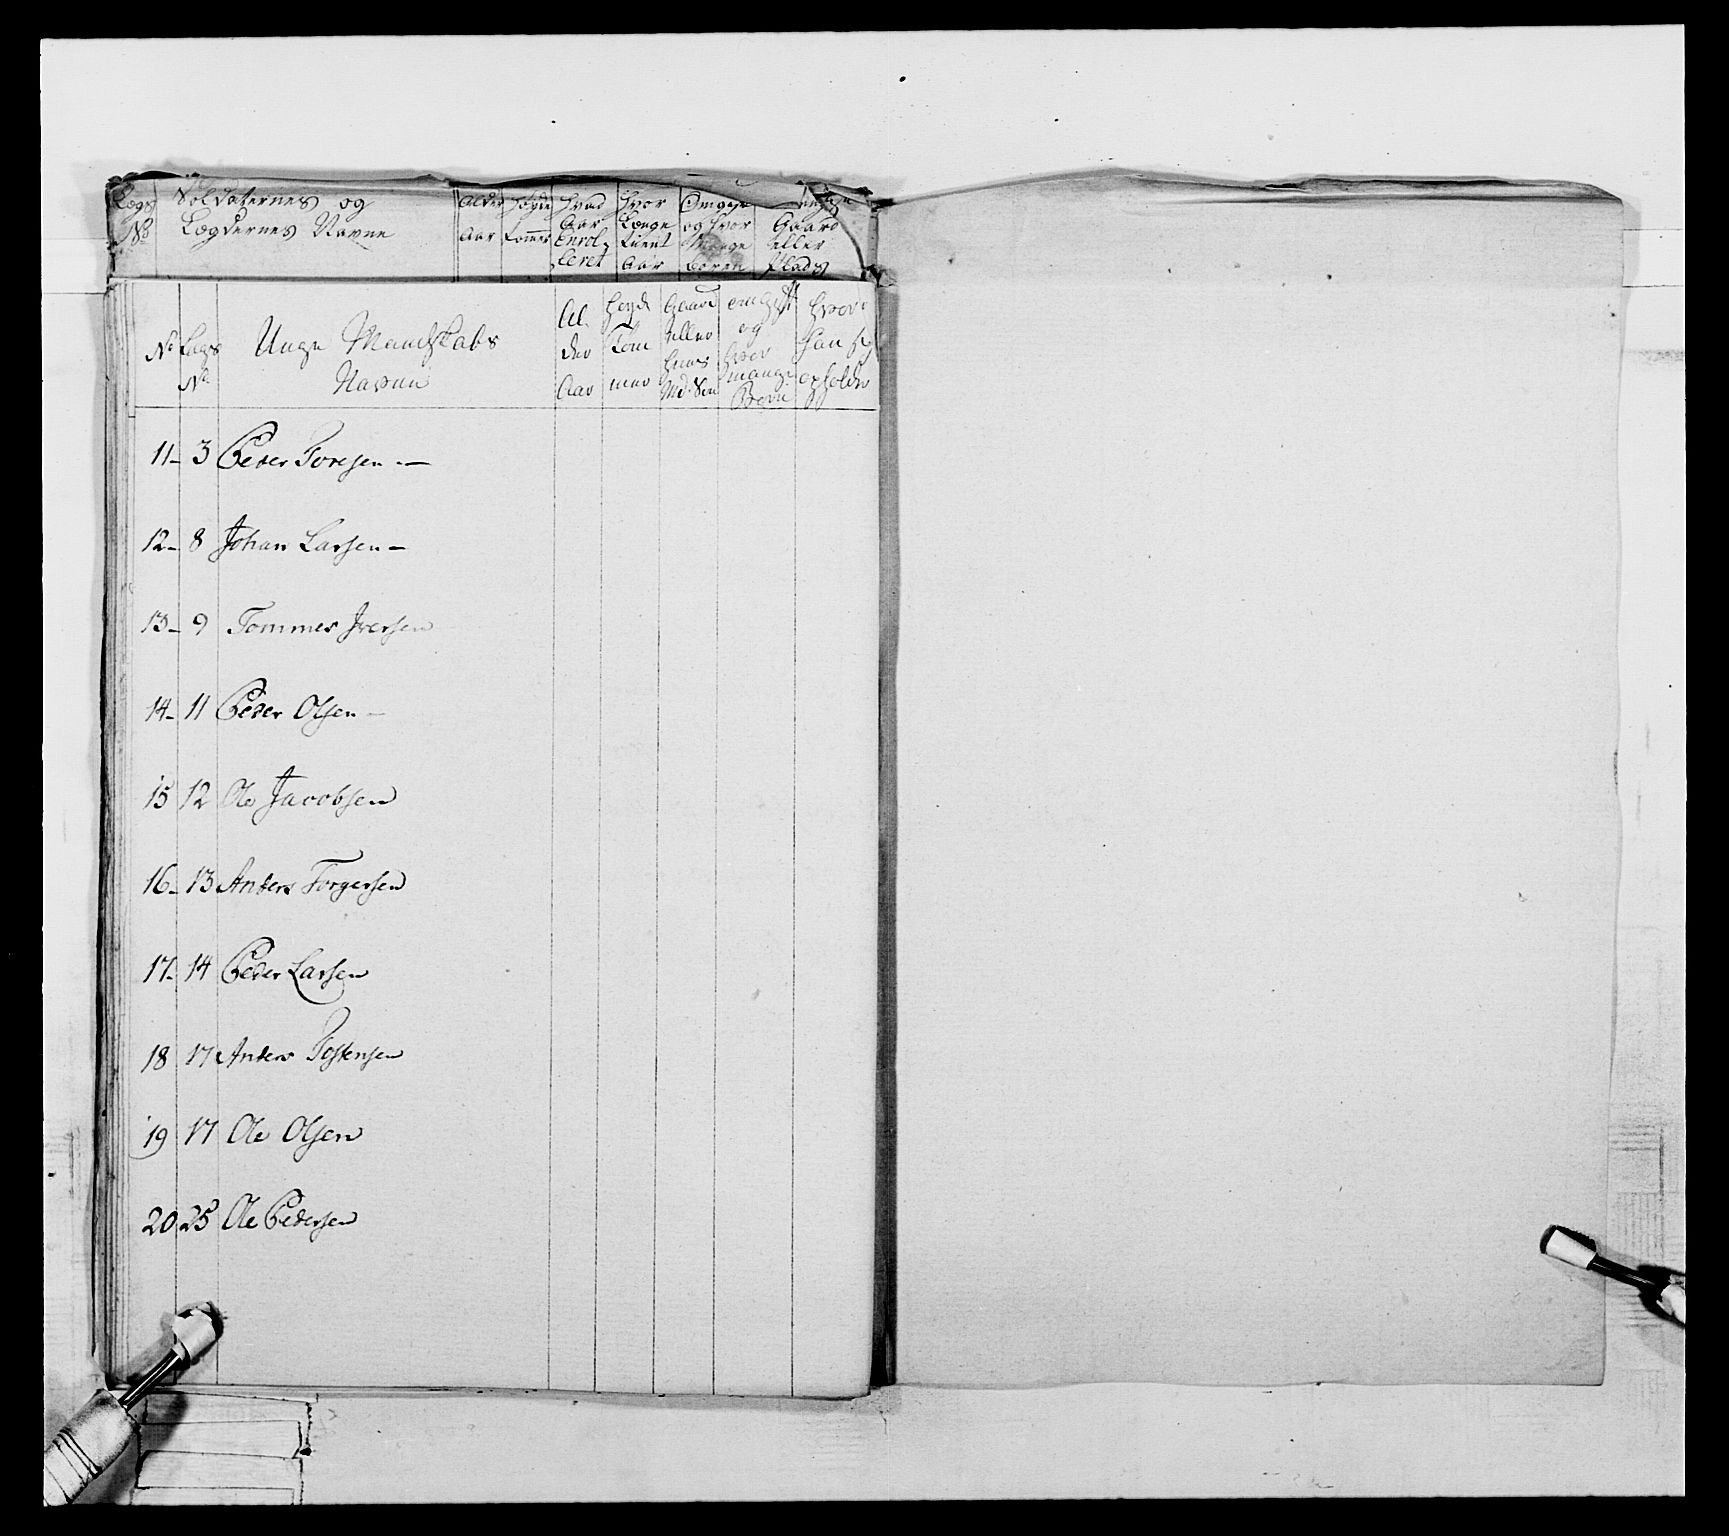 Lægs No | Soldaternes og Lægdernes Navne | Alder Aar | Høyde Tommer | Hvad Aar Enrolleret | Hvor Længe tient Aar | og hvor Mange Børn | Gaard eller Plads
No | Lægs No | Unge Mandskabs Navne | Alder Aar | Høyde Tommer | Gaard eller | og hvor mange Børn | Hvor han sig opholder
11 - 3 Peder Toresen -
12 - 8 Johan Larsen -
13 - 9 Tommes Iversen
14 - 11 Peder Olsen -
15 12 Ole Jacobsen
16 - 13 Anders Torgersen
17 - 14 Peder Larsen
18 17 Anders Tostensen
19 17 Ole Olsen
20 25 Ole Pedersen